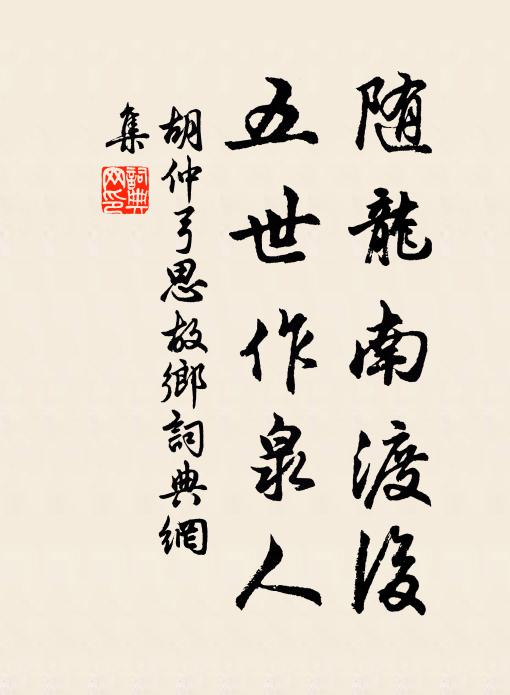 随龍南渡後
五世作泉人
胡仲弓思故鄉詞典網
集
詞典网印